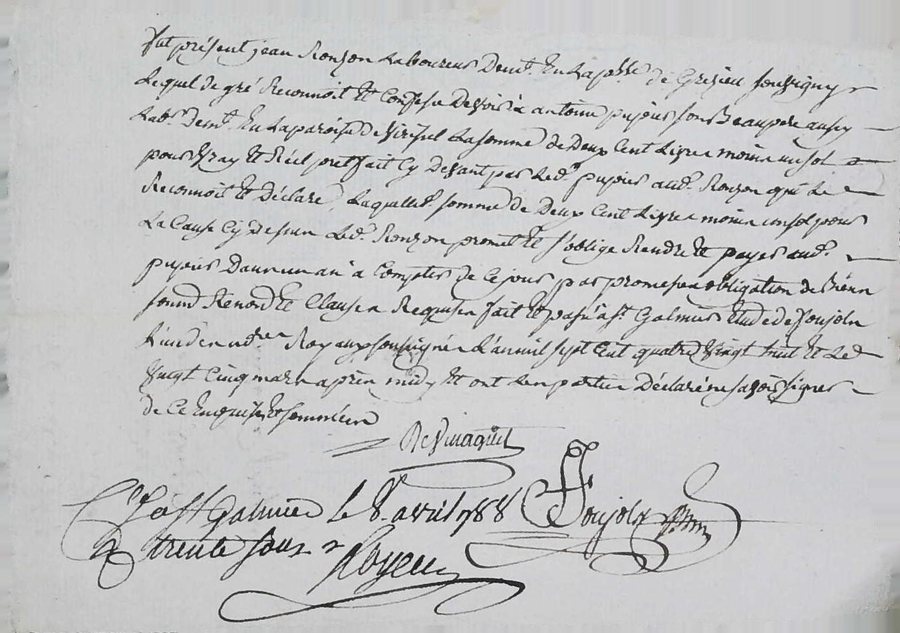 fut présent jean Ronzon Laboureur demt. En La psse. de Grezieu souvigny
Lequel de gré Reconnoit Et Confesse devoir à antoine pupier son Beaupere aussy
Labr. demt. En La paroisse de Viricel La somme de Deux Cent Livres moins un sol
pour Vray Et Réel prest fait Cy devant par Led. pupier aud. Ronzon qui Le
Reconnoit Et Déclare Laquelle somme de Deux Cent Livres moins un sol pour
La Cause Cy dessus Led. Ronzon promet Et s'oblige Rendre Et payer aud.
pupier Dans un an à Compter de Ce jour par promesses obligation de Biens
soumd Renond Et Clauses Requises fait Et passé à st Galmier Etude de Poujols
L'un des nres. Royaux soussignés L'an mil sept Cent quatre Vingt huit Et Led
Vingt Cinq mars après midy Et ont Les parties Déclaré ne savoir signer
de Ce Enquises Et sommées
Cé à st Galmier le 8. avril 788
R trente sous Royer
Poujols